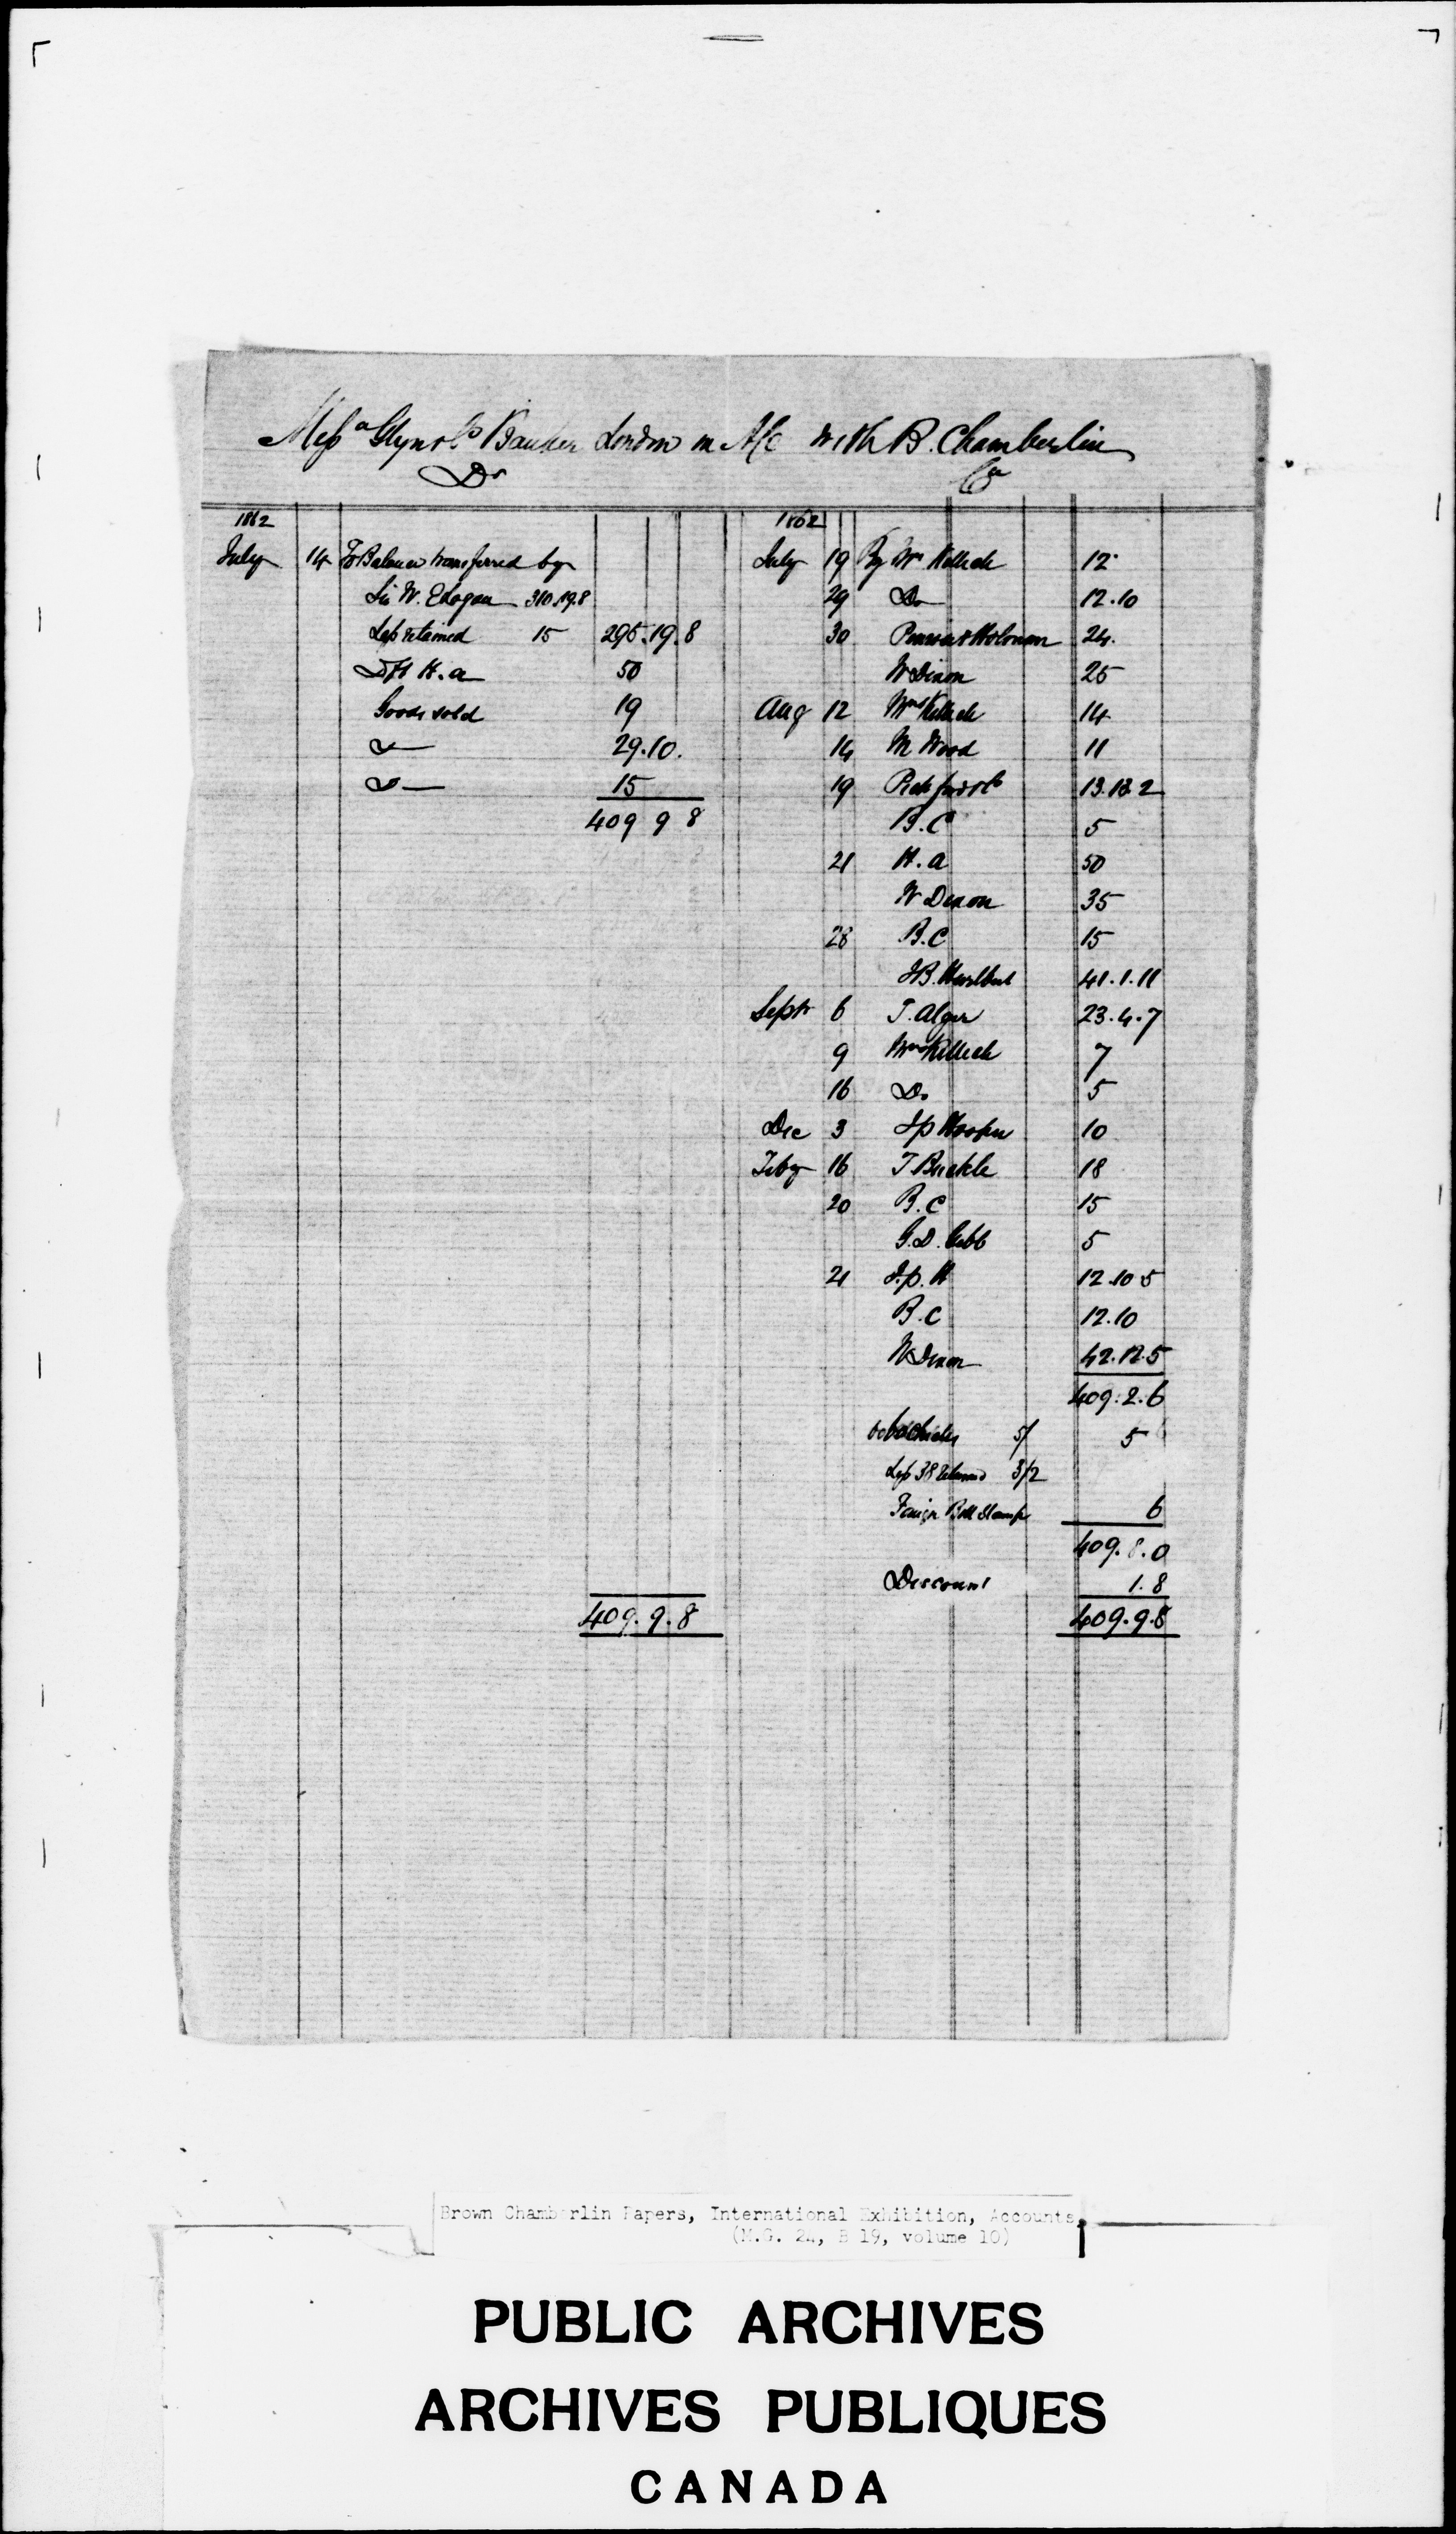 Messrs Glyn & Co Bankers London in A/c with B. Chamberlin
Dr Cr
1862
July 14 To Balance transferred by
Sir W. E Logan 310.19.8
Less retained 15 295.19.8
Dft H. A 50
Goods sold 19
Do 29.10.
Do 15
409 9 8
409.9.8
1862
July 19 By Wm Kellick 12
29 Do 12.10
30 24.
W Dixon 25
Aug 12 Wm Kellick 14
14 M Wood 11
19 Pickford & Co 13.13.2
B.C 5
21 H. A 50
W Dixon 35
28 B.C 15
J B. Hurlburt 41.1.11
Septr 6 T. Alger 23.4.7
9 Wm Kellick 7
16 Do 5
Dec 3 J p Hooper 10
Feby 16 T Buckle 18
20 B.C 15
G. D. Gibb 5
21 J. p. H 12.10 5
B.C 12.10
W Dixon 42.12.5
409.2.6
60 Checks 5/ 5
Less 38 Returned 3/2
Foreign Bill Stamp 6
409.8.0
Discount 1.8
409.9.8
Brown Chamberlin Papers, International Exhibition, Accounts,
(M.G. 24, B 19, volume 10)
PUBLIC ARCHIVES
ARCHIVES PUBLIQUES
CANADA